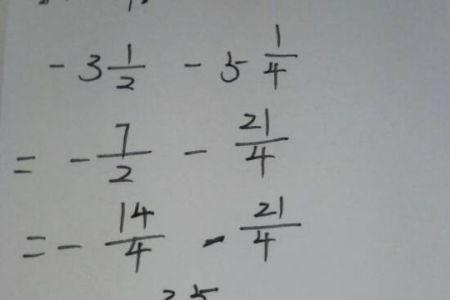 - 3 1/2 - 5 1/4
= - 7/2 - 21/4
= - 14/4 - 21/4
35